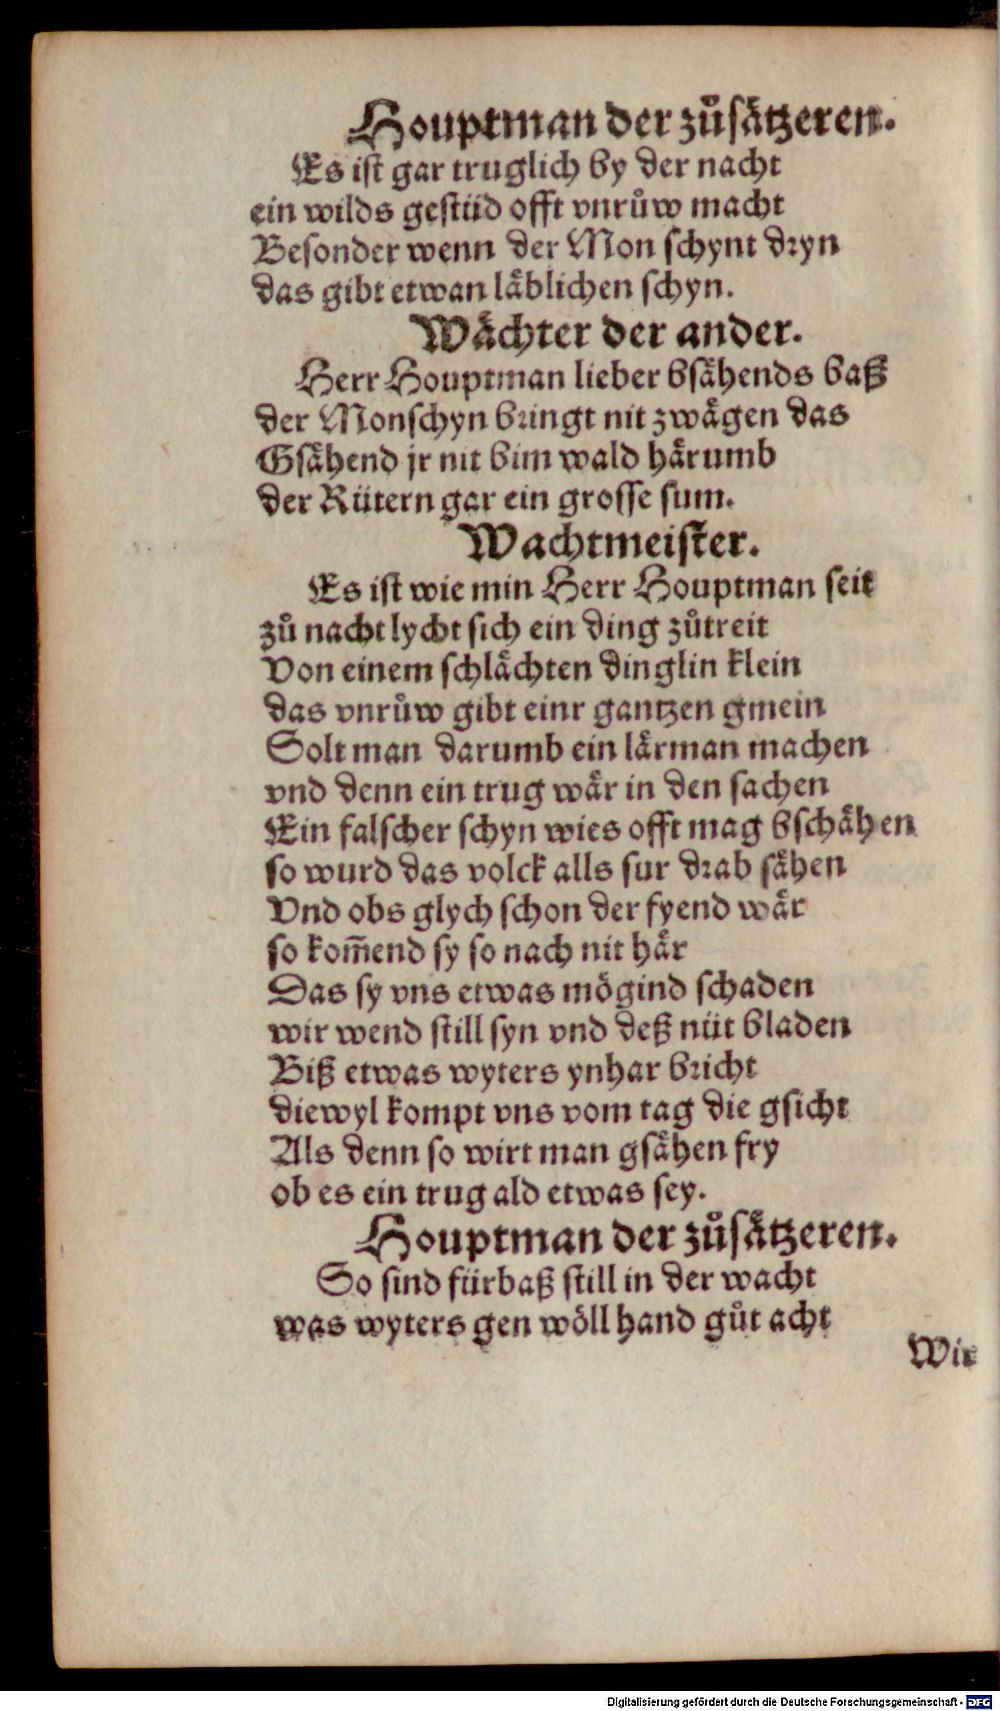 Houptman der zůsätzeren.
Es ist gar truglich by der nacht
ein wilds gestüd offt vnrůw macht
Besonder wenn der Mon schynt dryn
das gibt etwan läblichen schyn.
Wächter der ander.
Herr Houptman lieber bsähends baß
der Monschyn bringt nit zwägen das
Gsähend jr nit bim wald härumb
der Rütern gar ein grosse sum.
Wachtmeister.
Es ist wie min Herr Houptman seit
zů nacht lycht sich ein ding zůtreit
Von einem schlächten dinglin klein
das vnrůw gibt einr gantzen gmein
Solt man darumb ein lärman machen
vnd denn ein trug wär in den sachen
Ein falscher schyn wies offt mag bschähen
so wurd das volck alls sur drab sähen
Vnd obs glych schon der fyend wär
so kom̃end sy so nach nit här
Das sy vns etwas mögind schaden
wir wend still syn vnd deß nüt bladen
Biß etwas wyters ynhar bricht
diewyl kompt vns vom tag die gsicht
Als denn so wirt man gsähen fry
ob es ein trug ald etwas sey.
Houptman der zůsätzeren.
So sind fürbaß still in der wacht
was wyters gen wöll hand gůt acht
Wir
Digitalisierung gefördert durch die Deutsche Forschungsgemeinschaft - DFG